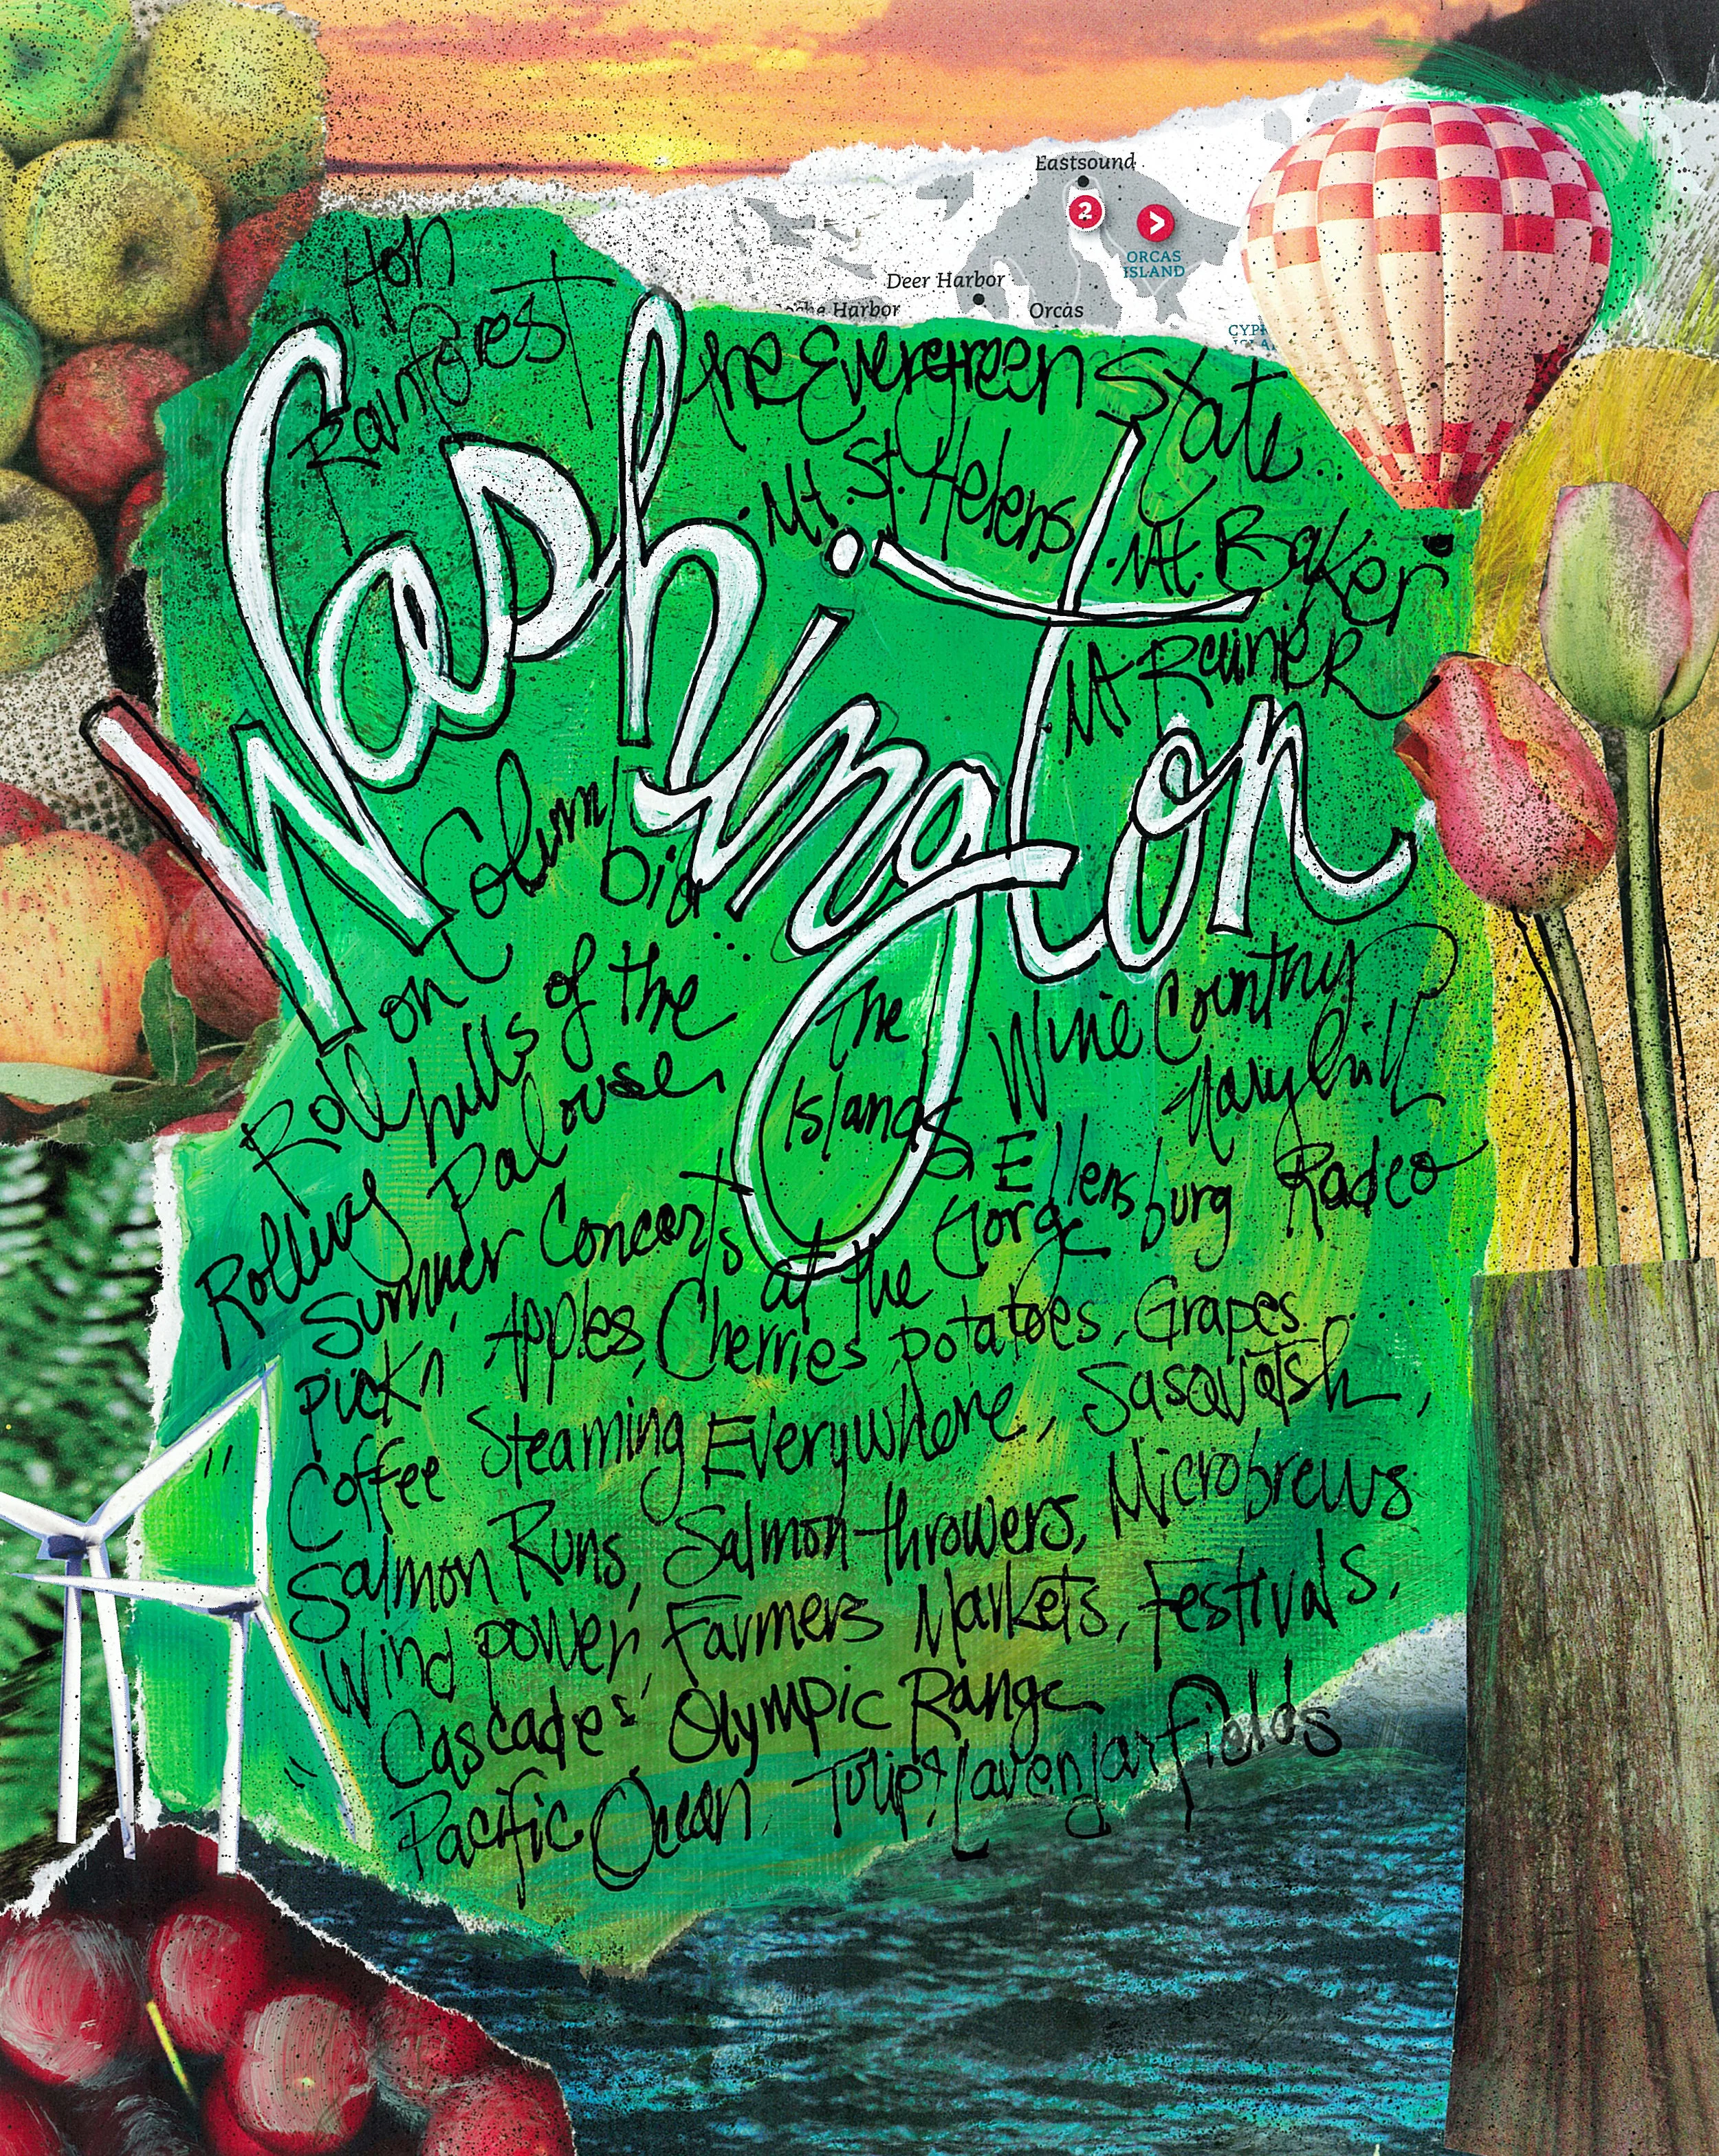 Eastsound
2
>
ORCAS
ISLAND
Deer Harbor
Harbor
Orcas
Hoh
Rainforest
the Evergreen State
Mt. St. Helens
Mt. Baker
Mt Rainier
Washington
Roll on Columbia...
Rolling hills of the
Palouse
The
Islands
Wine Country
Maryhill
& Ellensburg Radeo
Summer Concerts at the Gorge
pickn' Apples, Cherries potatoes, Grapes
Coffee Steaming Everywhere, Sasquatsh,
Salmon Runs, Salmon-throwers, Microbrews
Wind power, Farmers Markets, Festivals,
Cascades' Olympic Range
Pacific Ocean, Tulip & Lavendar fields